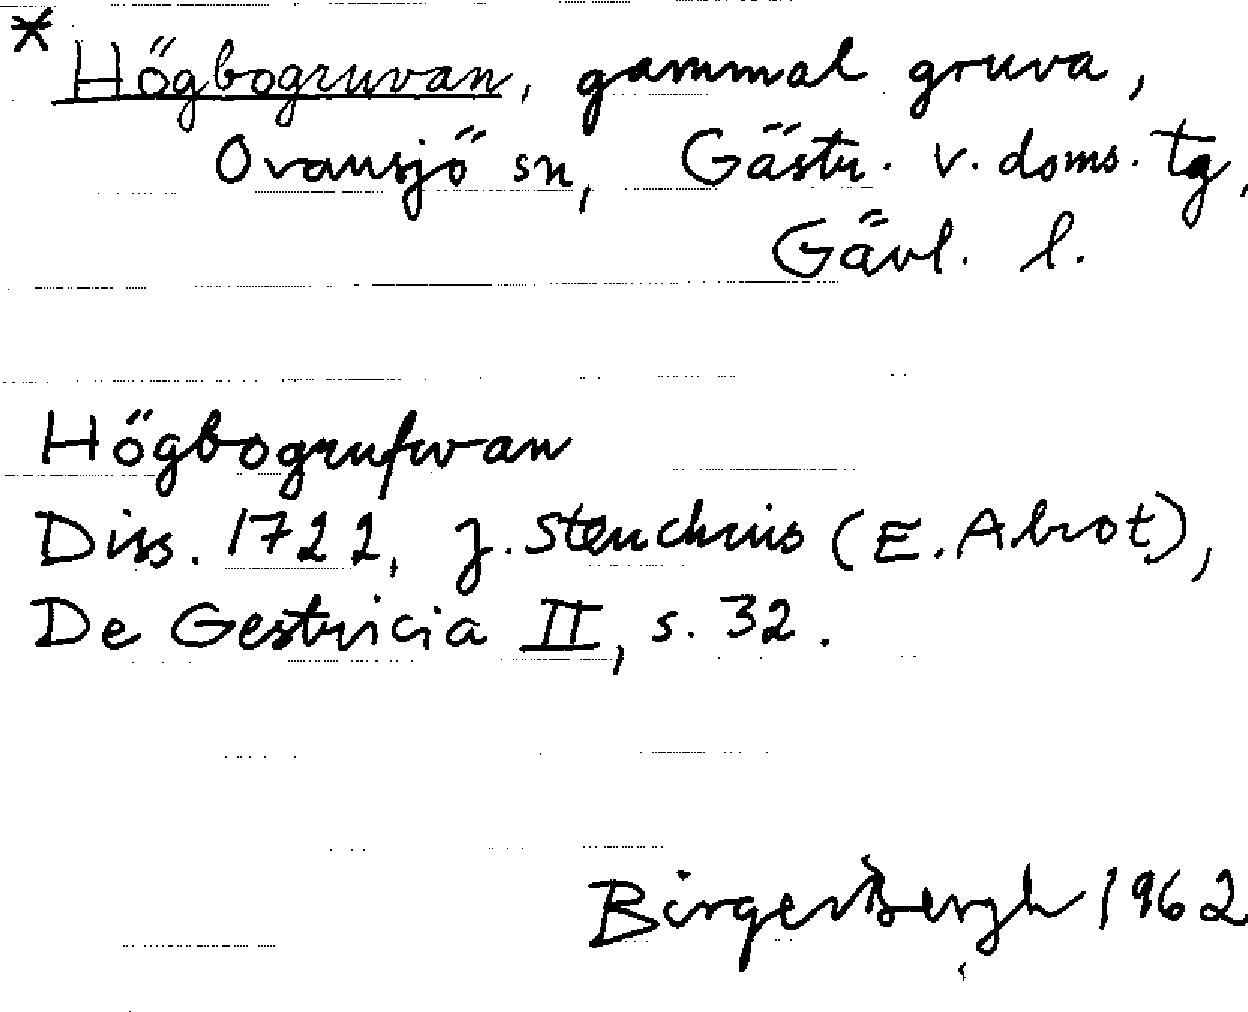 * Högbogruvan, gammal gruva,
Ovansjö sn, Gästr. v. doms. tg,
Gävl. l.
Högbogrufwan
Diss. 1722, J. Steuchius (E. Abrot),
De Gestricia II, s. 32.
Birger Bergh 1962